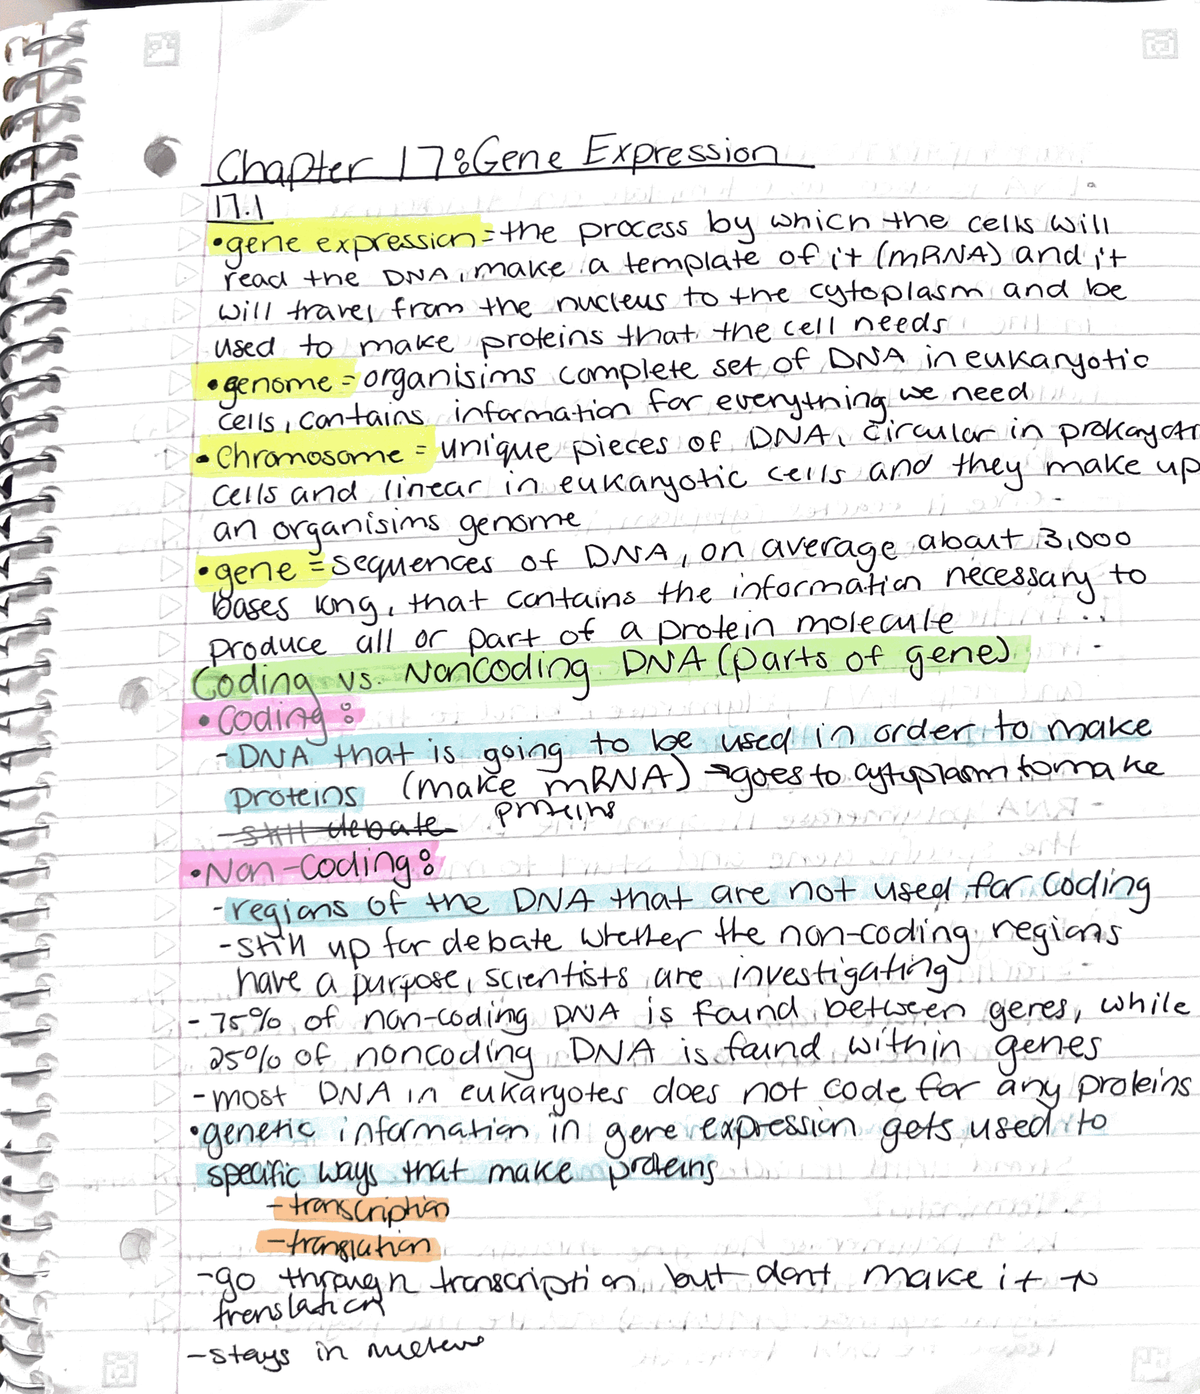 Chapter 17: Gene Expression
17.1
• gene expression = the process by which the cells will
read the DNA, make a template of it (mRNA) and it
will travel from the nucleus to the cytoplasm and be
used to make proteins that the cell needs
• genome = organisims complete set of DNA in eukaryotic
cells, contains information for everything we need
• Chromosome = unique pieces of DNA, circular in prokaryoti
cells and linear in eukaryotic cells and they make up
an organisims genome
• gene = sequences of DNA, on average about 3,000
bases long, that contains the information necessary to
produce all or part of a protein molecule
Coding vs. Noncoding DNA (parts of gene)
• Coding:
- DNA that is going to be used in order to make
proteins (make mRNA) → goes to cytoplasm to make
proteins
- still debate
• Non-Coding:
- regions of the DNA that are not used for coding
- still up for debate whether the non-coding regions
have a purpose, scientists are investigating
- 75% of non-coding DNA is found between genes, while
25% of noncoding DNA is found within genes
- most DNA in eukaryotes does not code for any proteins
• genetic information in gene expression gets used to
specific ways that make proteins
- transcription
- translation
- go through transcription but dont make it to
translation
- stays in nucleus